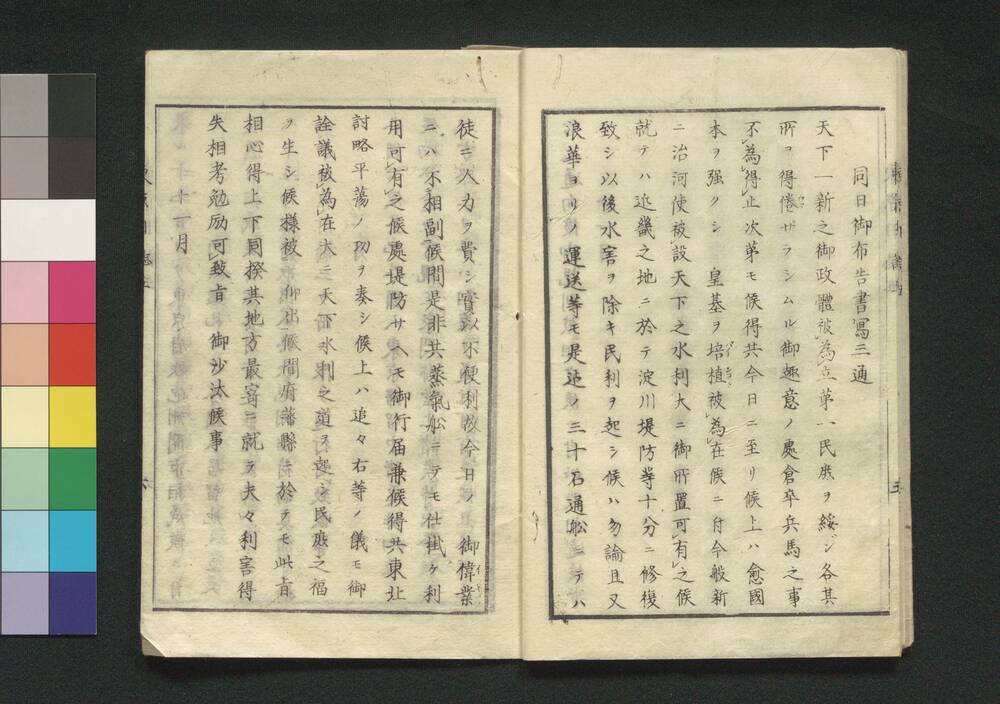 同日御布告書寫三通
天下一新之御政體被爲立第一民庶ヲ綏ジ各其
所ヲ得倦ザラシムル御趣意ノ處倉卒兵馬之事
不爲得止次第モ候得共今日ニ至リ候上ハ愈國
本ヲ强クシ　皇基ヲ培植被爲在候ニ付今般新
ニ治河使被設天下之水利大ニ御所置可有之候
就テハ近畿之地ニ於テ淀川堤防等十分ニ修復
致シ以後水害ヲ除キ民利ヲ起シ候ハ勿論且又
浪華ヨリノ運送等モ是迄ノ三十石通舩ニテハ
徒ニ人力ヲ費シ實以不便利故今日ノ　御偉業
ニハ不相副候間是非共蒸氣舩ニテモ仕掛ケ利
用可有之候處堤防サヘモ御行届兼候得共東北
討略平蕩ノ功ヲ奏シ候上ハ追々右等ノ儀モ御
詮議被爲在大ニ天下水利之道ヲ起シ民庶之福
ヲ生シ候樣被　仰出候間府藩縣ニ於テモ此旨
相心得上下同揆其地方最寄ニ就テ夫々利害得
失相考勉励可致旨　御沙汰候事
十一月
五
六